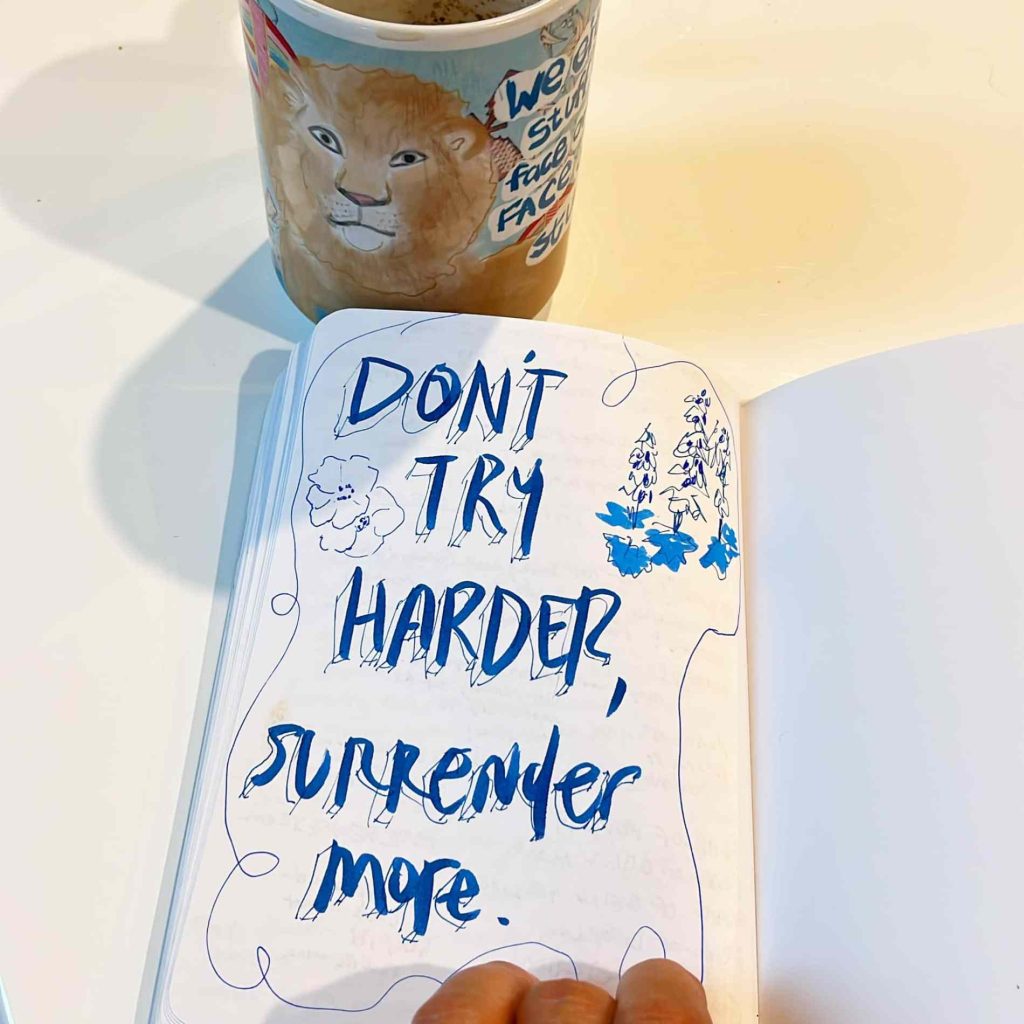 We
face
FACE
DON'T
TRY
HARDER,
SURRENDER
more.